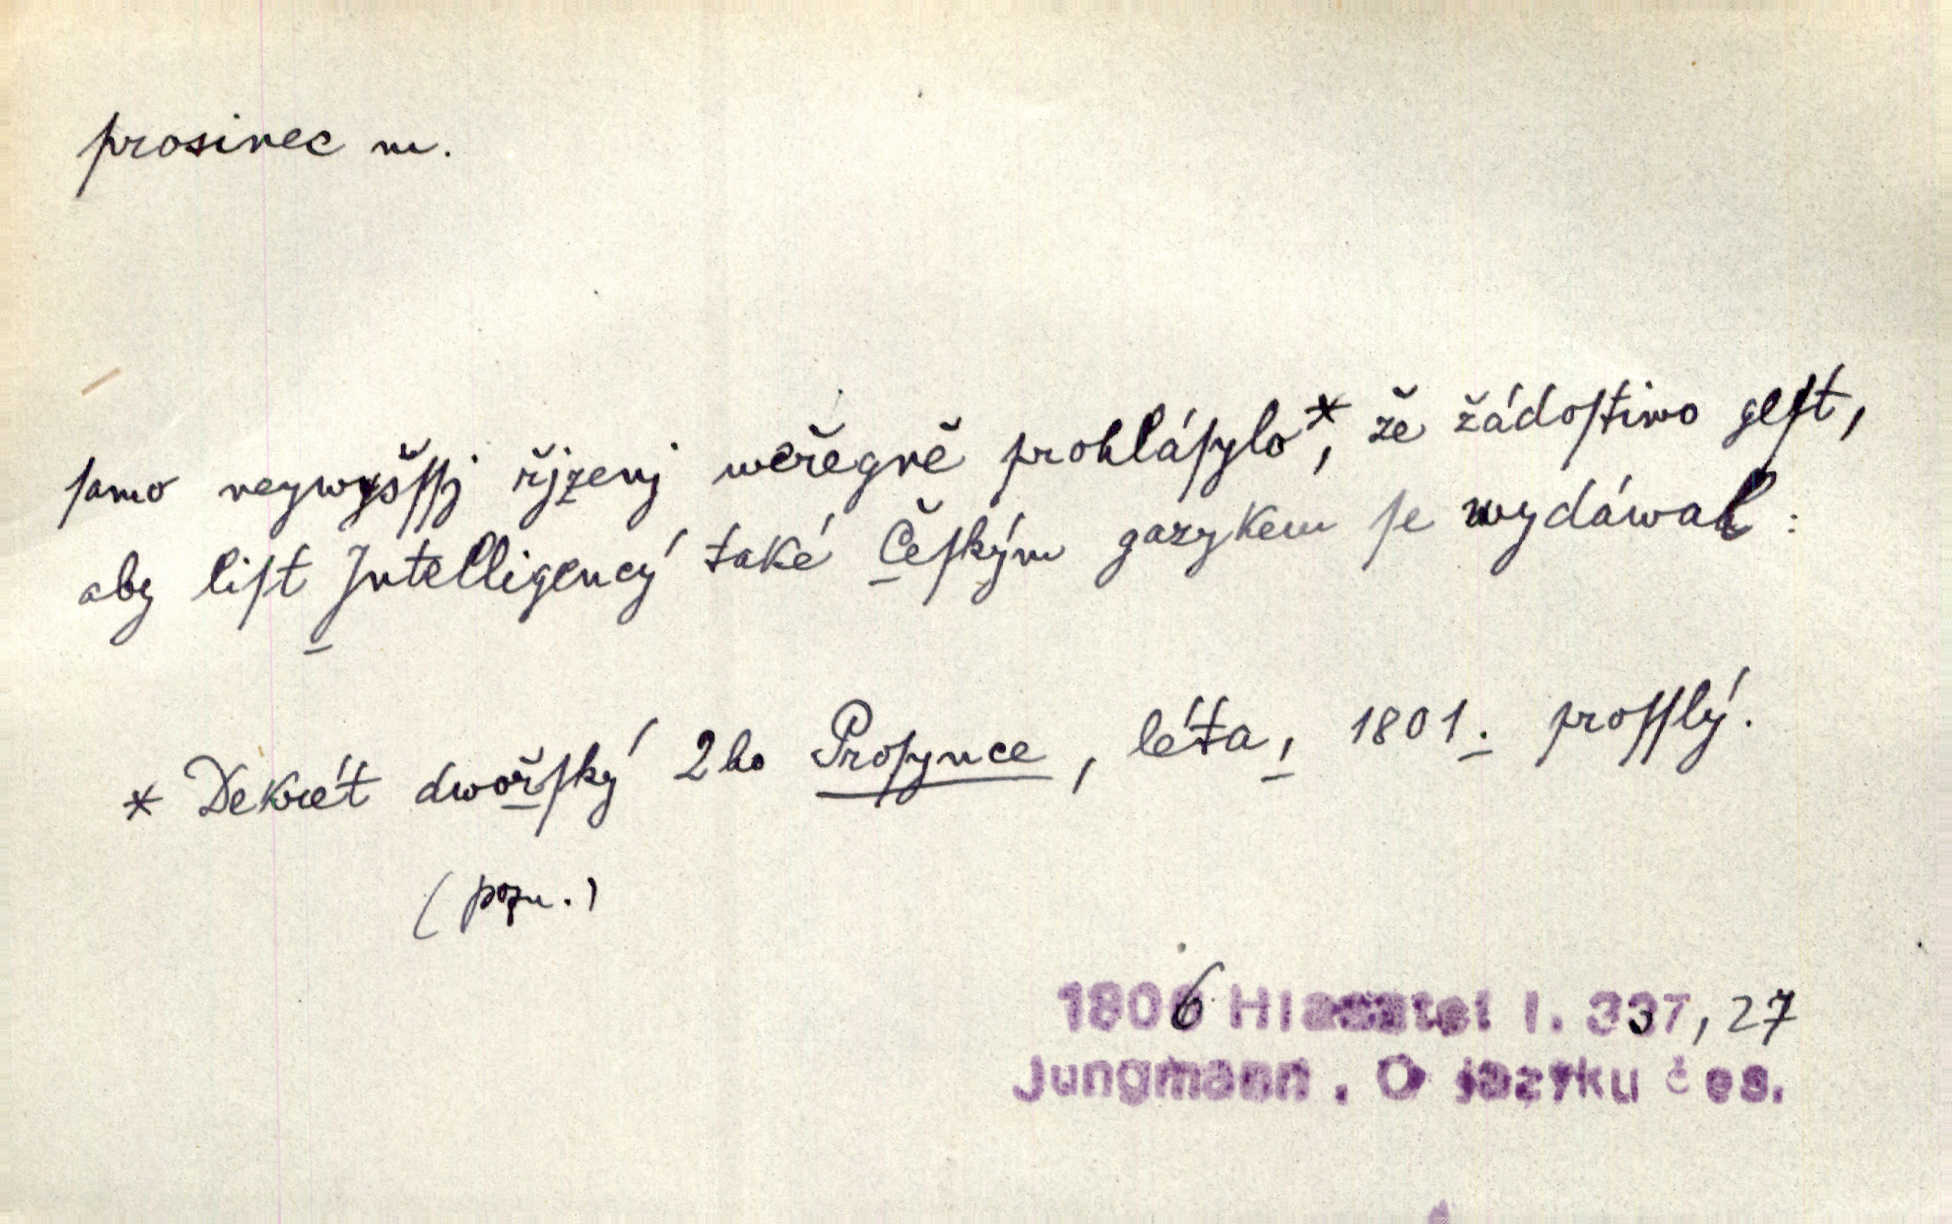 prosinec m.
ſamo neywyšſſj řjzenj weřegně prohláſylo*, že žádoſtiwo geſt,
aby liſt Intelligencý také Čeſkým gazykem ſe wydáwal :
* Dekrét dwořſký 2ho Proſynce, léta, 1801. proſſlý.
(pozn.)
1806 Hlasatel I. 337, 27
Jungmann. O jazyku čes.